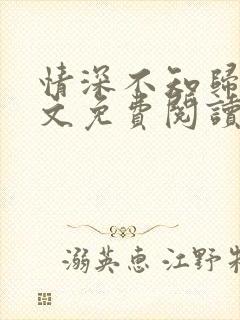 情深不知歸
文免費閱讀
溺英惠 江野